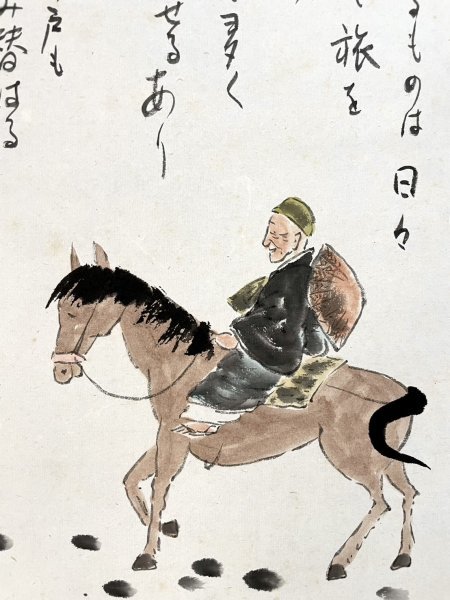 るものは 日々
旅を
多く
せるあり
戸も
み替はる